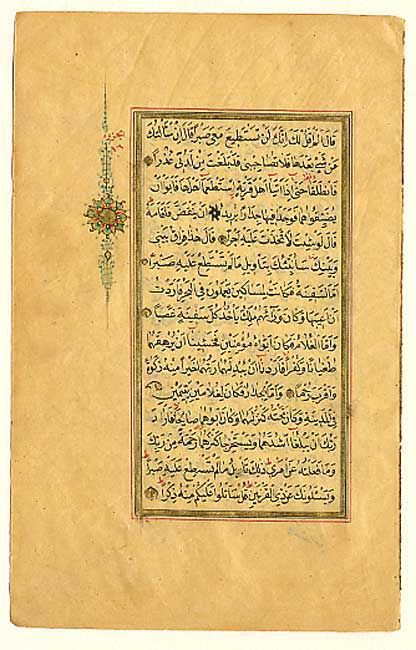 قَالَ اَلَمْ اَقُلْ لَكَ اِنَّكَ لَنْ تَسْتَطِيعَ مَعِيَ صَبْرًا قَالَ اِنْ سَاَلْتُكَ
عَنْ شَيْءٍ بَعْدَهَا فَلَا تُصَاحِبْنِي قَدْ بَلَغْتَ مِنْ لَدُنِّي عُذْرًا
فَانْطَلَقَا حَتّٰى اِذَا اَتَيَا اَهْلَ قَرْيَةٍ اِسْتَطْعَمَا اَهْلَهَا فَاَبَوْا اَنْ
يُضَيِّفُوهُمَا فَوَجَدَا فِيهَا جِدَارًا يُرِيدُ اَنْ يَنْقَضَّ فَاَقَامَهُ
قَالَ لَوْ شِئْتَ لَاتَّخَذْتَ عَلَيْهِ اَجْرًا قَالَ هٰذَا فِرَاقُ بَيْنِي
وَبَيْنِكَ سَاُنَبِّئُكَ بِتَاْوِيلِ مَا لَمْ تَسْتَطِعْ عَلَيْهِ صَبْرًا
اَمَّا السَّفِينَةُ فَكَانَتْ لِمَسَاكِينَ يَعْمَلُونَ فِي الْبَحْرِ فَاَرَدْتُ
اَنْ اَعِيبَهَا وَكَانَ وَرَاءَهُمْ مَلِكٌ يَاْخُذُ كُلَّ سَفِينَةٍ غَصْبًا
وَاَمَّا الْغُلَامُ فَكَانَ اَبَوَاهُ مُؤْمِنَيْنِ فَخَشِينَا اَنْ يُرْهِقَهُمَا
طُغْيَانًا وَكُفْرًا فَاَرَدْنَا اَنْ يُبْدِلَهُمَا رَبُّهُمَا خَيْرًا مِنْهُ زَكٰوةً
وَاَقْرَبَ رُحْمًا وَاَمَّا الْجِدَارُ فَكَانَ لِغُلَامَيْنِ يَتِيمَيْنِ
فِي الْمَدِينَةِ وَكَانَ تَحْتَهُ كَنْزٌ لَهُمَا وَكَانَ اَبُوهُمَا صَالِحًا فَاَرَادَ
رَبُّكَ اَنْ يَبْلُغَا اَشُدَّهُمَا وَيَسْتَخْرِجَا كَنْزَهُمَا رَحْمَةً مِنْ رَبِّكَ
وَمَا فَعَلْتُهُ عَنْ اَمْرِي ذٰلِكَ تَاْوِيلُ مَا لَمْ تَسْطِعْ عَلَيْهِ صَبْرًا
وَيَسْئَلُونَكَ عَنْ ذِي الْقَرْنَيْنِ قُلْ سَاَتْلُوا عَلَيْكُمْ مِنْهُ ذِكْرًا